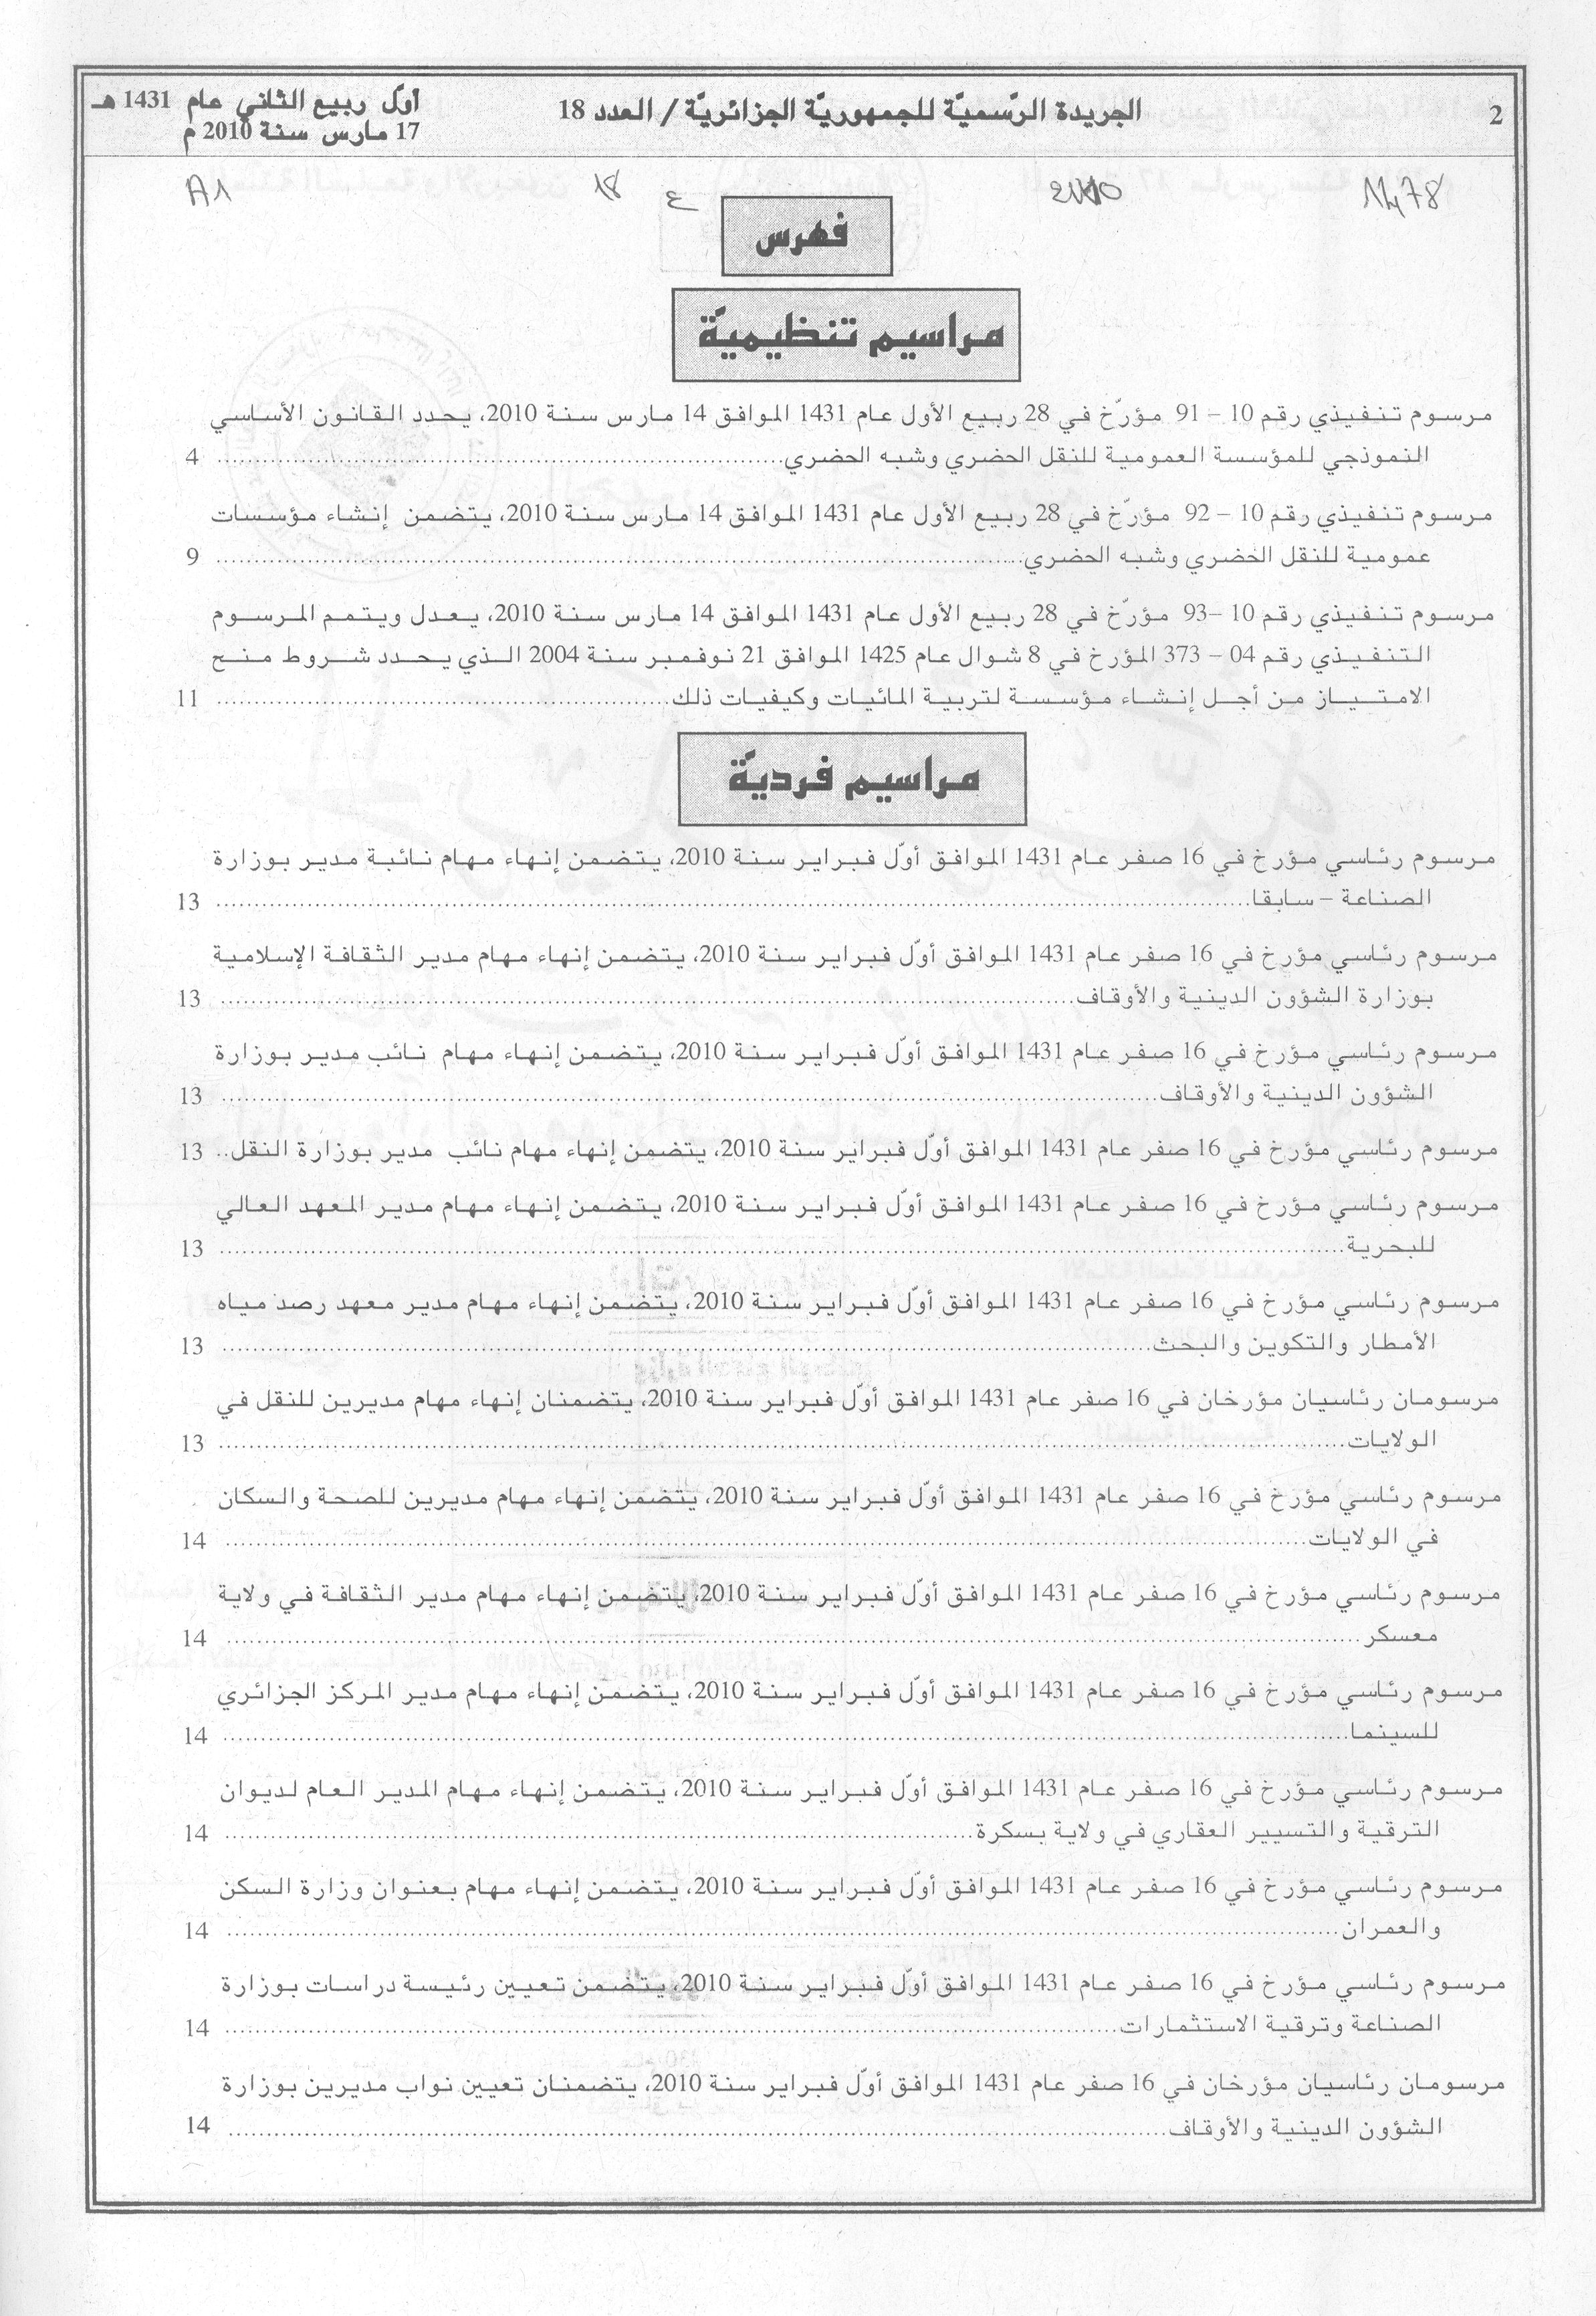 2
الجريدة الرّسميّة للجمهوريّة الجزائريّة / العدد 18
أوّل ربيع الثاني عام 1431 هـ
17 مارس سنة 2010 م
1478
2010
ع
18
A1
فهرس
مراسيم تنظيميّة
مرسوم تنفيذي رقم 10 – 91 مؤرّخ في 28 ربيع الأول عام 1431 الموافق 14 مارس سنة 2010، يحدد القانون الأساسي
النموذجي للمؤسسة العمومية للنقل الحضري وشبه الحضري................ 4
مرسوم تنفيذي رقم 10 – 92 مؤرّخ في 28 ربيع الأول عام 1431 الموافق 14 مارس سنة 2010، يتضمن إنشاء مؤسسات
عمومية للنقل الحضري وشبه الحضري................ 9
مرسوم تنفيذي رقم 10 –93 مؤرّخ في 28 ربيع الأول عام 1431 الموافق 14 مارس سنة 2010، يعدل ويتمم المرسوم
التنفيذي رقم 04 – 373 المؤرخ في 8 شوال عام 1425 الموافق 21 نوفمبر سنة 2004 الذي يحدد شروط منح
الامتياز من أجل إنشاء مؤسسة لتربية المائيات وكيفيات ذلك................ 11
مراسيم فرديّة
مرسوم رئاسي مؤرخ في 16 صفر عام 1431 الموافق أوّل فبراير سنة 2010، يتضمن إنهاء مهام نائبة مدير بوزارة
الصناعة – سابقا................ 13
مرسوم رئاسي مؤرخ في 16 صفر عام 1431 الموافق أوّل فبراير سنة 2010، يتضمن إنهاء مهام مدير الثقافة الإسلامية
بوزارة الشؤون الدينية والأوقاف................ 13
مرسوم رئاسي مؤرخ في 16 صفر عام 1431 الموافق أوّل فبراير سنة 2010، يتضمن إنهاء مهام نائب مدير بوزارة
الشؤون الدينية والأوقاف................ 13
مرسوم رئاسي مؤرخ في 16 صفر عام 1431 الموافق أوّل فبراير سنة 2010، يتضمن إنهاء مهام نائب مدير بوزارة النقل.. 13
مرسوم رئاسي مؤرخ في 16 صفر عام 1431 الموافق أوّل فبراير سنة 2010، يتضمن إنهاء مهام مدير المعهد العالي
للبحرية................ 13
مرسوم رئاسي مؤرخ في 16 صفر عام 1431 الموافق أوّل فبراير سنة 2010، يتضمن إنهاء مهام مدير معهد رصد مياه
الأمطار والتكوين والبحث................ 13
مرسومان رئاسيان مؤرخان في 16 صفر عام 1431 الموافق أوّل فبراير سنة 2010، يتضمنان إنهاء مهام مديرين للنقل في
الولايات................ 13
مرسوم رئاسي مؤرخ في 16 صفر عام 1431 الموافق أوّل فبراير سنة 2010، يتضمن إنهاء مهام مديرين للصحة والسكان
في الولايات................ 14
مرسوم رئاسي مؤرخ في 16 صفر عام 1431 الموافق أوّل فبراير سنة 2010، يتضمن إنهاء مهام مدير الثقافة في ولاية
معسكر................ 14
مرسوم رئاسي مؤرخ في 16 صفر عام 1431 الموافق أوّل فبراير سنة 2010، يتضمن إنهاء مهام مدير المركز الجزائري
للسينما................ 14
مرسوم رئاسي مؤرخ في 16 صفر عام 1431 الموافق أوّل فبراير سنة 2010، يتضمن إنهاء مهام المدير العام لديوان
الترقية والتسيير العقاري في ولاية بسكرة................ 14
مرسوم رئاسي مؤرخ في 16 صفر عام 1431 الموافق أوّل فبراير سنة 2010، يتضمن إنهاء مهام بعنوان وزارة السكن
والعمران................ 14
مرسوم رئاسي مؤرخ في 16 صفر عام 1431 الموافق أوّل فبراير سنة 2010، يتضمن تعيين رئيسة دراسات بوزارة
الصناعة وترقية الاستثمارات................ 14
مرسومان رئاسيان مؤرخان في 16 صفر عام 1431 الموافق أوّل فبراير سنة 2010، يتضمنان تعيين نواب مديرين بوزارة
الشؤون الدينية والأوقاف................ 14